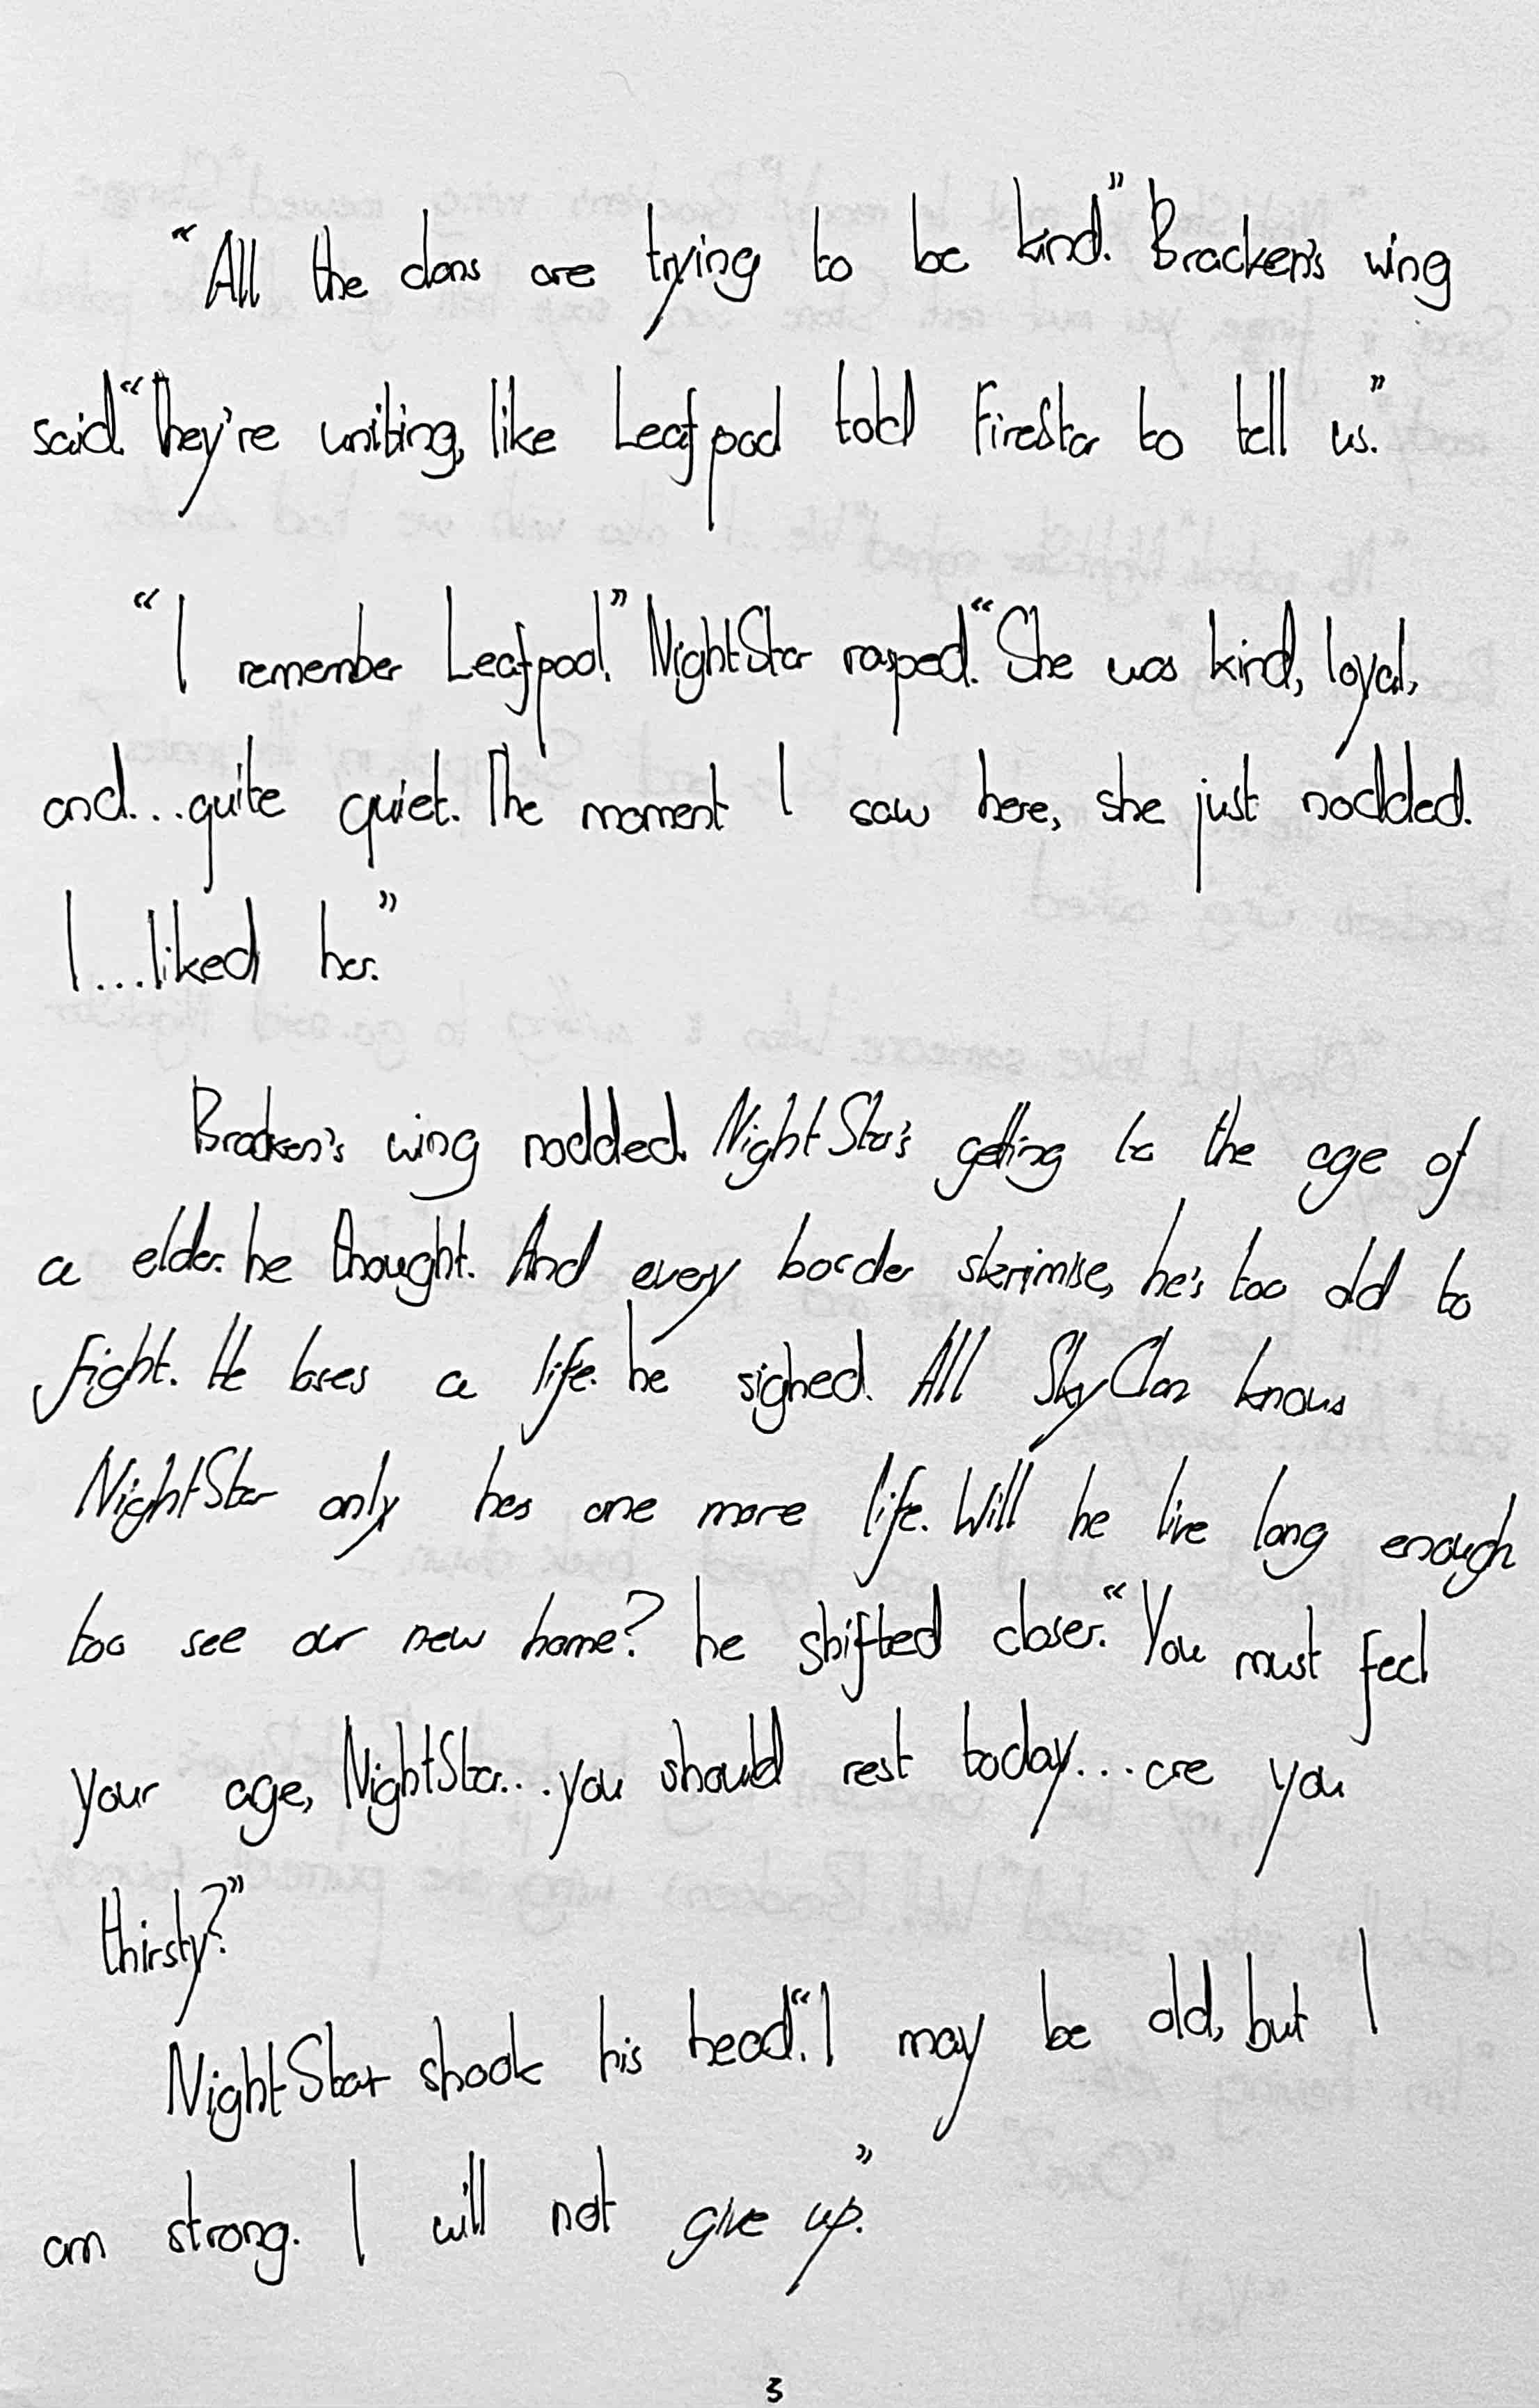 “All the clans are trying to be kind.” Bracken's wing
said. “They're uniting, like Leafpool told FireStar to tell us.”
“I remember Leafpool.” NightStar rasped. “She was kind, loyal,
and...quite quiet. The moment I saw here, she just nodded.
I...liked her.”
Bracken's wing nodded. NightStar's getting to the age of
a elder. he thought. And every border skrimise, he's too old to
fight. He loses a life. he sighed. All SkyClan knows
NightStar only has one more life. Will he live long enough
too see our new home? he shifted closer. “You must feel
your age, NightStar...you should rest today...are you
thirsty?”
NightStar shook his head. “I may be old, but I
am strong. I will not give up.”
3